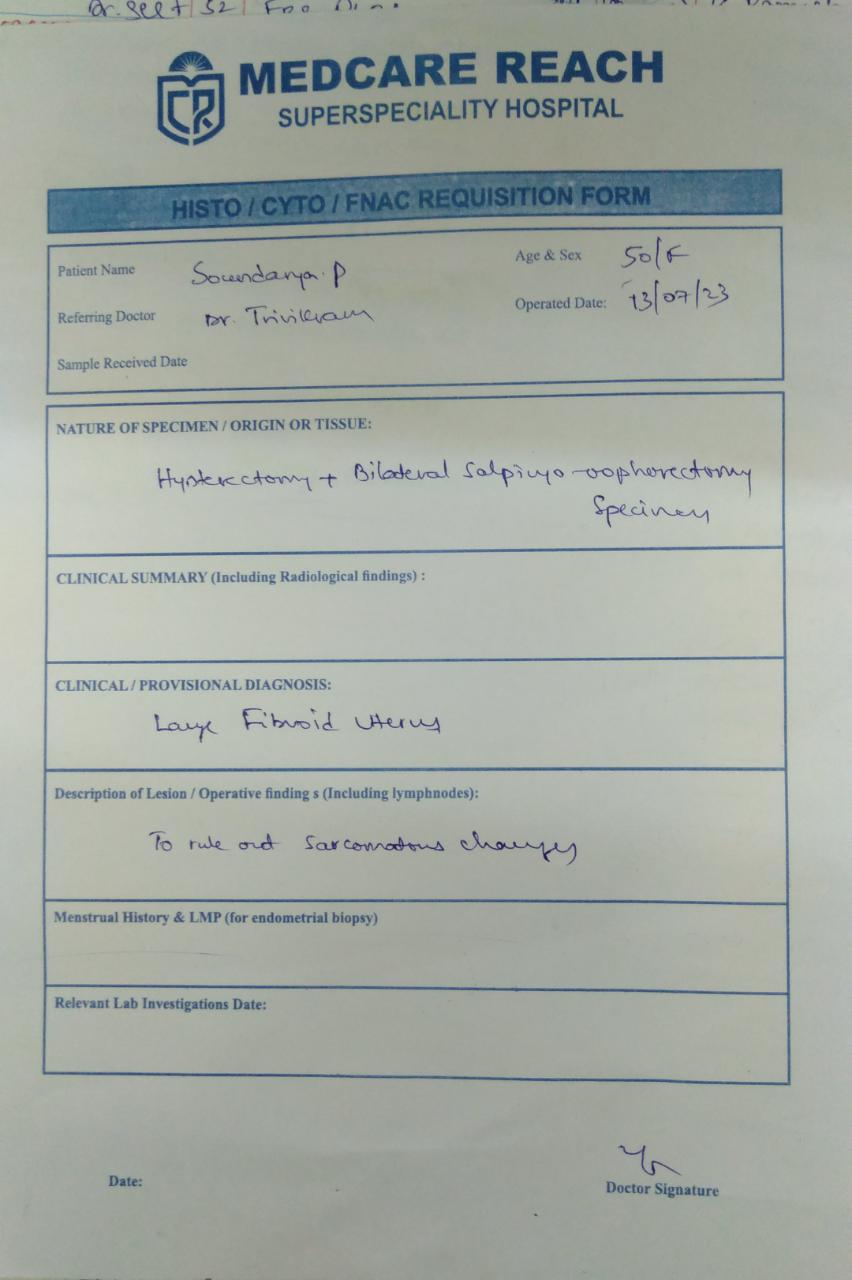 Dr. Seet 52
MEDCARE REACH
SUPERSPECIALITY HOSPITAL
HISTO / CYTO / FNAC REQUISITION FORM
Patient Name Soundarya. P
Age & Sex 50/F
Referring Doctor Dr. Trivikram
Operated Date: 13/07/23
Sample Received Date
NATURE OF SPECIMEN / ORIGIN OR TISSUE:
Hysterectomy + Bilateral Salpingo-oophorectomy
Specimen
CLINICAL SUMMARY (Including Radiological findings) :
CLINICAL / PROVISIONAL DIAGNOSIS:
Large Fibroid Uterus
Description of Lesion / Operative finding s (Including lymphnodes):
To rule out Sarcomatous changes
Menstrual History & LMP (for endometrial biopsy)
Relevant Lab Investigations Date:
Date:
Doctor Signature